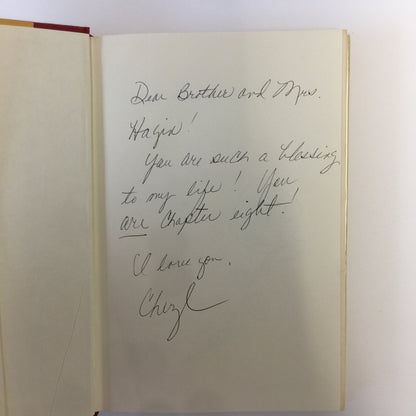 Dear Brother and Mrs.
Hagin!
You are such a blessing
to my life! You
are Chapter eight!
I love you,
Cheryl